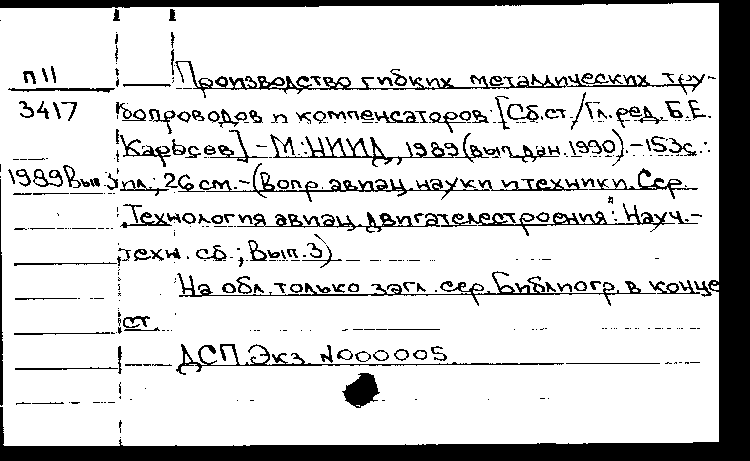 П11
Производство гибких металлических тру-
3417
бопроводов и компенсаторов [Сб.ст./Гл.ред. Б.Е.
Карасев] - М.: НИИД, 1989 (вып.дан.1990). - 153с.:
1989 Вып 3
ил.; 26 см. - (Вопр. авиац. науки и техники. Сер.
"Технология авиац. двигателестроения": Науч.-
техн. сб.; Вып. 3)
На обл. только загл. сер. Библиогр. в конце
ст.
ДСП. Экз. №000005.